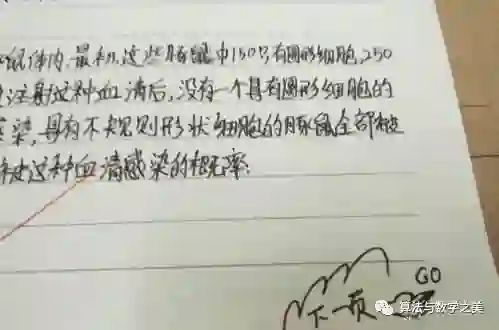 鼠体内.最初,这些豚鼠中150只有圆形细胞,250
注射这种血清后,没有一个具有圆形细胞的
感染,具有不规则形状细胞的豚鼠全部被
被这种血清感染的概率.
GO
下一页
算法与数学之美